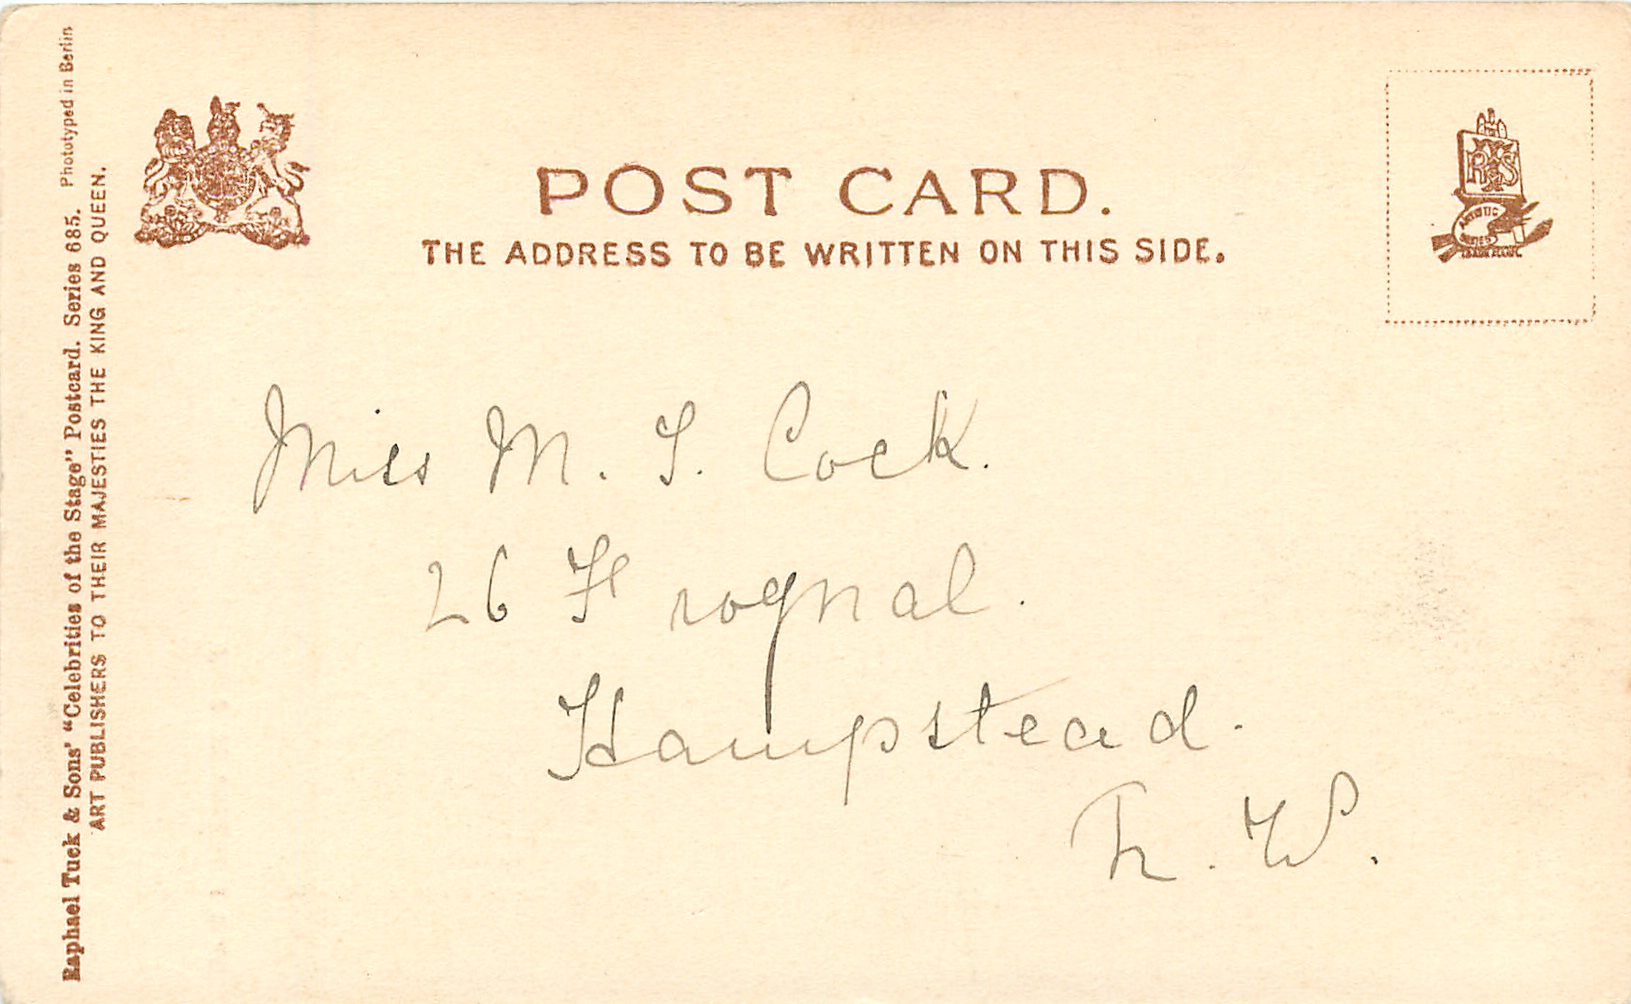 Raphael Tuck & Sons' "Celebrities of the Stage" Postcard. Series 685. Phototyped in Berlin
ART PUBLISHERS TO THEIR MAJESTIES THE KING AND QUEEN.
POST CARD.
THE ADDRESS TO BE WRITTEN ON THIS SIDE.
RTS
ARTISTIC
SERIES
Miss M. S. Cock.
26 Frognal.
Hampstead.
N. W.